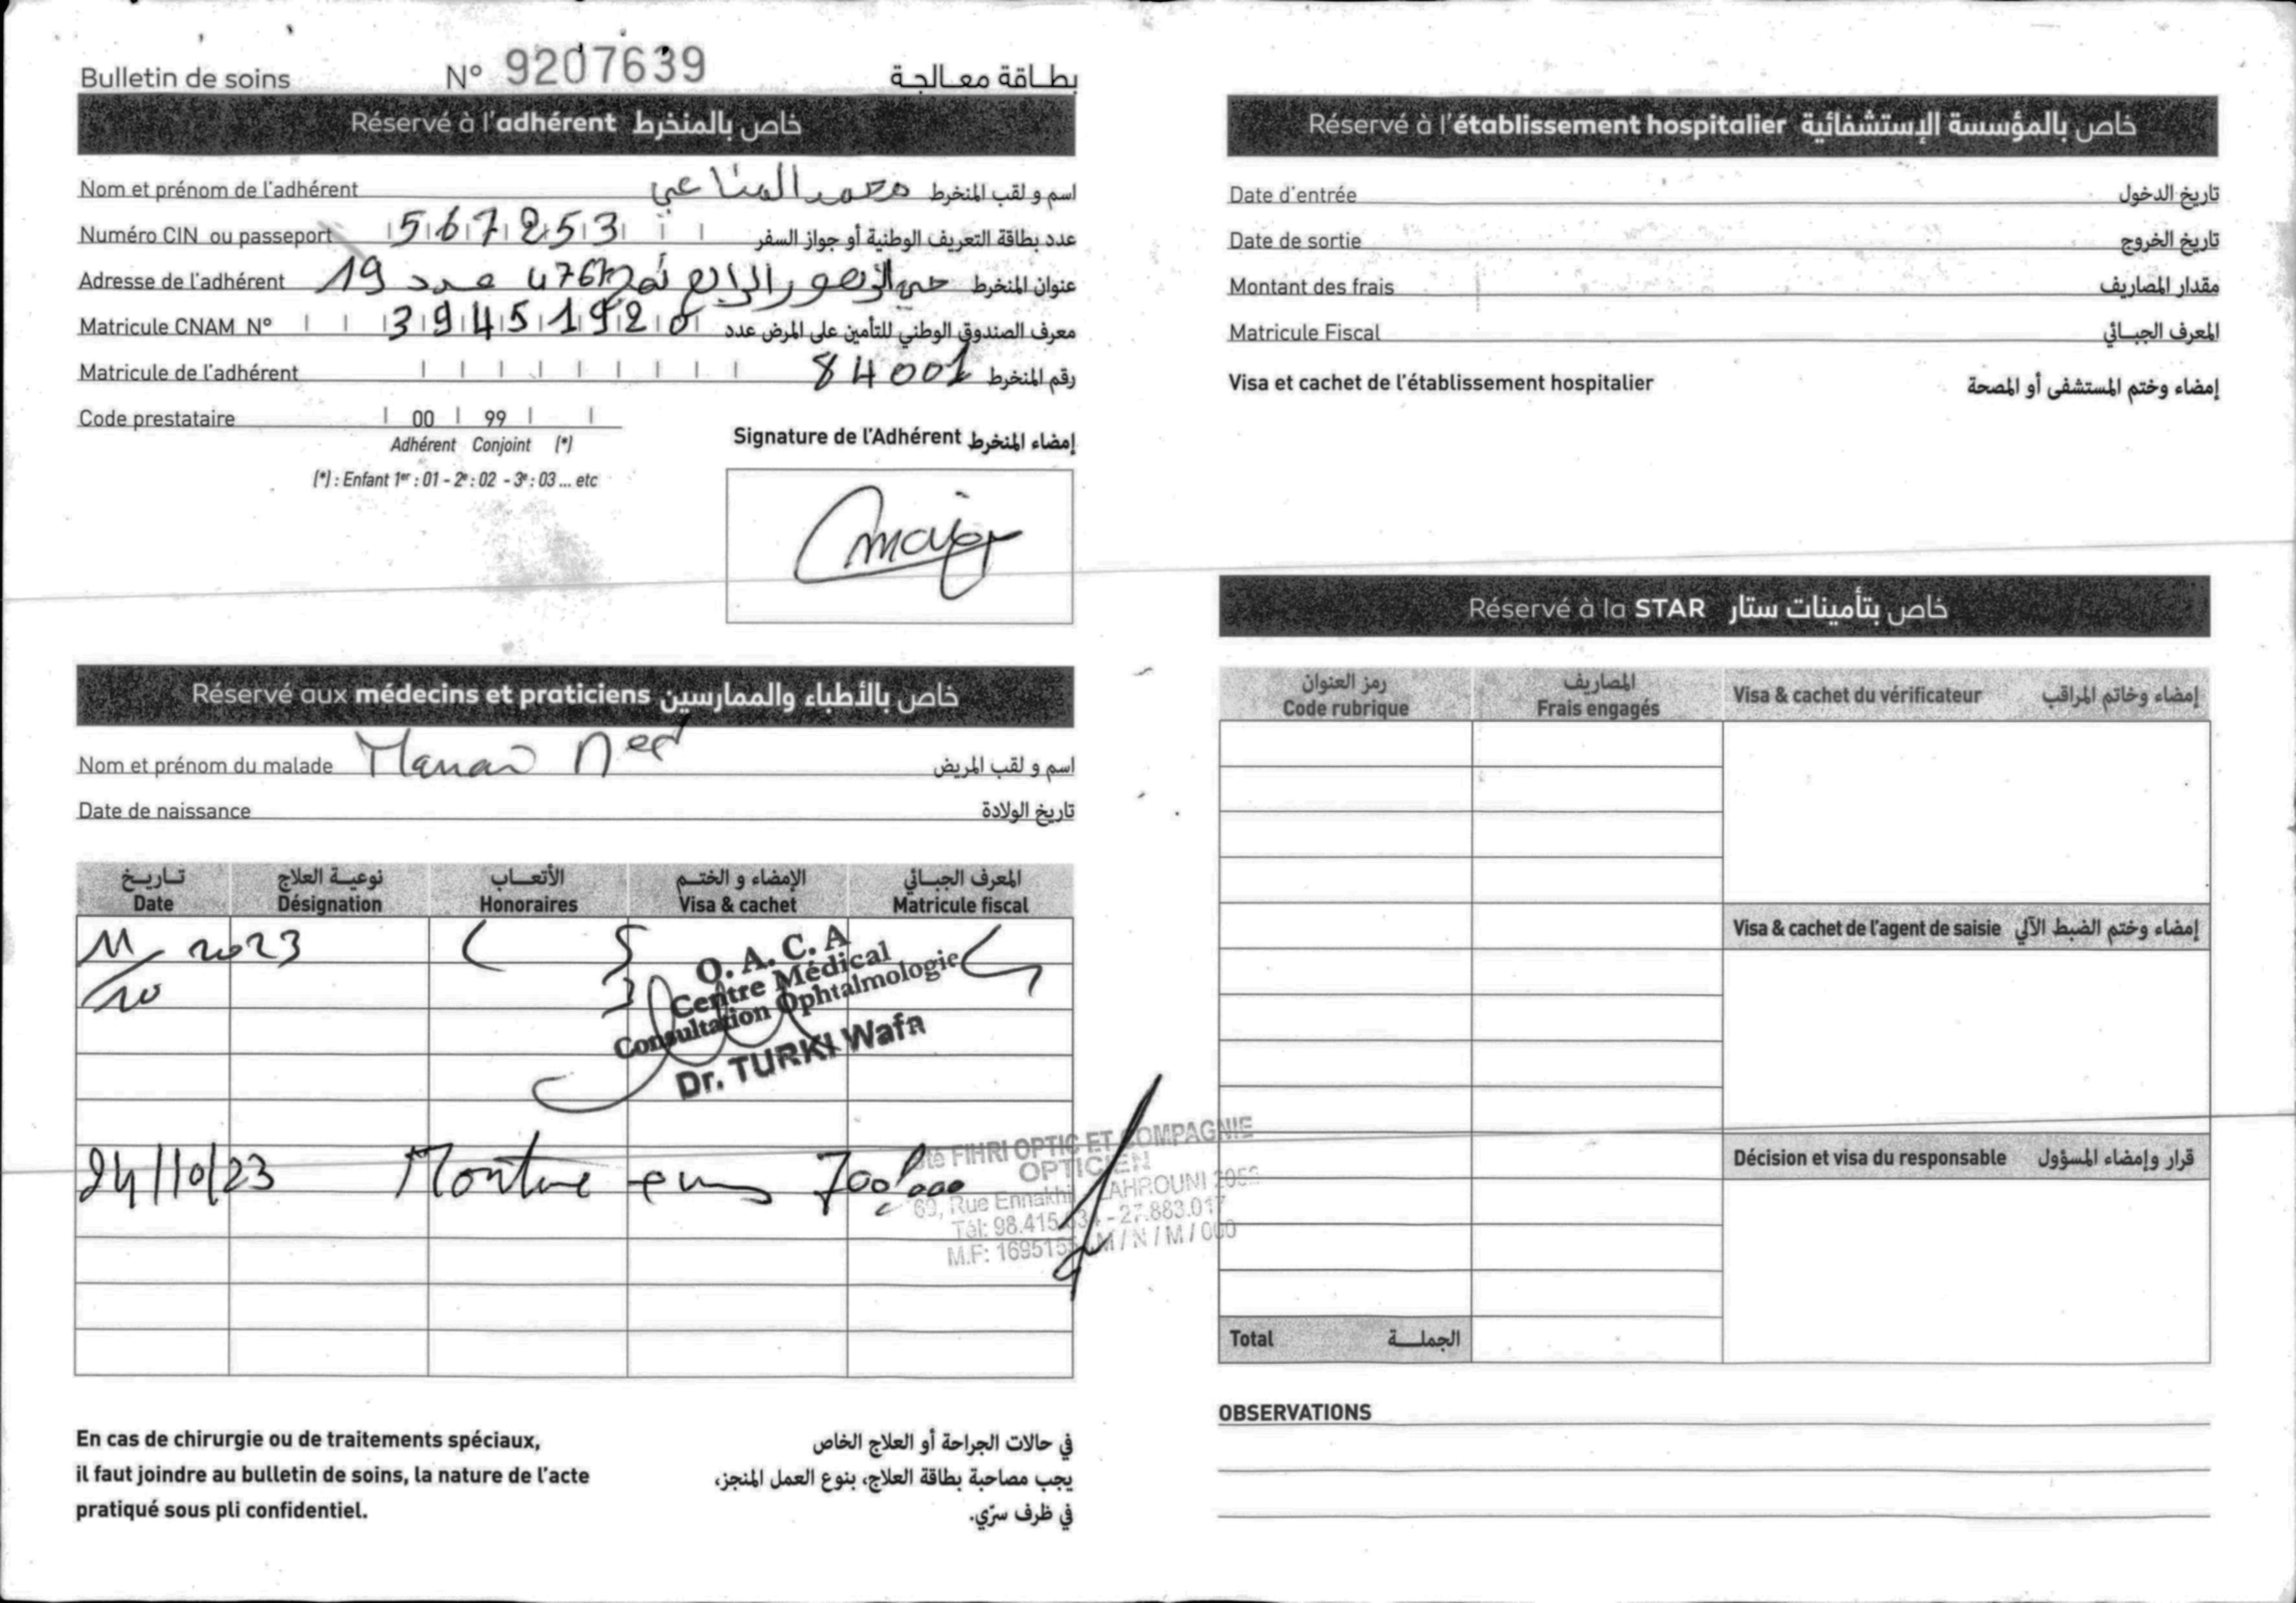 Bulletin de soins N° 9207639 بطاقة معالجة
Réservé à l'adhérent خاص بالمنخرط
Nom et prénom de l'adhérent محمد المناعي اسم و لقب المنخرط
Numéro CIN ou passeport 567253 عدد بطاقة التعريف الوطنية أو جواز السفر
Adresse de l'adhérent حي الزهور الرابع نهج 4761 عدد 19 عنوان المنخرط
Matricule CNAM N° 39451920 معرف الصندوق الوطني للتأمين على المرض عدد
Matricule de l'adhérent 84001 رقم المنخرط
Code prestataire 00 99
Adhérent Conjoint (*)
(*) : Enfant 1er : 01 - 2e : 02 - 3e : 03 ... etc
Signature de l'Adhérent إمضاء المنخرط
Réservé aux médecins et praticiens خاص بالأطباء والممارسين
Nom et prénom du malade Manai Med اسم و لقب المريض
Date de naissance تاريخ الولادة
تاريخ نوعية العلاج الأتعاب الإمضاء و الختم المعرف الجبائي
Date Désignation Honoraires Visa & cachet Matricule fiscal
11/10 2023
O. A. C. A
Centre Médical
Consultation Ophtalmologie
Dr. TURKI Wafa
24/10/23 Monture 700,000
Sté FIHRI OPTIC ET COMPAGNIE
OPTICIEN
69, Rue Ennakhil ZAHROUNI 2052
Tél: 98.415. - 27.883.017
M.F: 1695155 /M / N / M / 000
En cas de chirurgie ou de traitements spéciaux,
il faut joindre au bulletin de soins, la nature de l'acte
pratiqué sous pli confidentiel.
في حالات الجراحة أو العلاج الخاص
يجب مصاحبة بطاقة العلاج، بنوع العمل المنجز،
في ظرف سرّي.
Réservé à l'établissement hospitalier خاص بالمؤسسة الإستشفائية
Date d'entrée تاريخ الدخول
Date de sortie تاريخ الخروج
Montant des frais مقدار المصاريف
Matricule Fiscal المعرف الجبائي
Visa et cachet de l'établissement hospitalier إمضاء وختم المستشفى أو المصحة
Réservé à la STAR خاص بتأمينات ستار
رمز العنوان المصاريف
Code rubrique Frais engagés Visa & cachet du vérificateur إمضاء وخاتم المراقب
Visa & cachet de l'agent de saisie إمضاء وختم الضبط الآلي
Décision et visa du responsable قرار وإمضاء المسؤول
Total الجملة
OBSERVATIONS